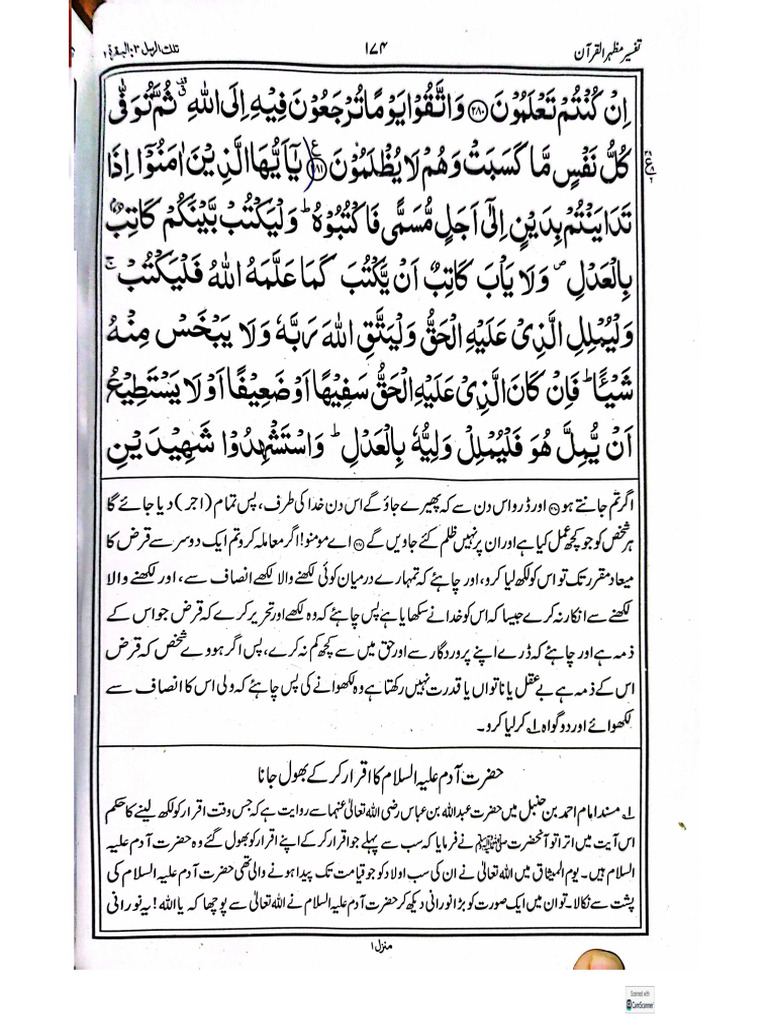 تفسیر مظہر القرآن ۱۷۴ تلك الرسل ۳: البقرة ۲
اِنۡ كُنۡتُمۡ تَعۡلَمُوۡنَ ﴿۲۸۰﴾ وَاتَّقُوۡا يَوۡمًا تُرۡجَعُوۡنَ فِيۡهِ اِلَى اللّٰهِ ۗ ثُمَّ تُوَفّٰى
كُلُّ نَفۡسٍ مَّا كَسَبَتۡ وَهُمۡ لَا يُظۡلَمُوۡنَ ﴿۲۸۱﴾ يٰۤاَيُّهَا الَّذِيۡنَ اٰمَنُوۡۤا اِذَا
تَدَايَنۡتُمۡ بِدَيۡنٍ اِلٰٓى اَجَلٍ مُّسَمًّى فَاكۡتُبُوۡهُ ؕ وَلۡيَكۡتُبۡ بَّيۡنَكُمۡ كَاتِبٌۢ
بِالۡعَدۡلِ ۖ وَلَا يَاۡبَ كَاتِبٌ اَنۡ يَّكۡتُبَ كَمَا عَلَّمَهُ اللّٰهُ فَلۡيَكۡتُبۡ ۚ
وَلۡيُمۡلِلِ الَّذِىۡ عَلَيۡهِ الۡحَقُّ وَلۡيَتَّقِ اللّٰهَ رَبَّهٗ وَلَا يَبۡخَسۡ مِنۡهُ
شَيۡـئًا ؕ فَاِنۡ كَانَ الَّذِىۡ عَلَيۡهِ الۡحَقُّ سَفِيۡهًا اَوۡ ضَعِيۡفًا اَوۡ لَا يَسۡتَطِيۡعُ
اَنۡ يُّمِلَّ هُوَ فَلۡيُمۡلِلۡ وَلِيُّهٗ بِالۡعَدۡلِ ؕ وَاسۡتَشۡهِدُوۡا شَهِيۡدَيۡنِ
اگر تم جانتے ہو ﴿۲۸۰﴾ اور ڈرو اس دن سے کہ پھیرے جاؤ گے اس دن خدا کی طرف، پس تمام (اجر) دیا جائے گا
ہر شخص کو جو کچھ عمل کیا ہے اور ان پر نہیں ظلم کئے جاویں گے ﴿۲۸۱﴾ اے مومنو! اگر معاملہ کرو تم ایک دوسرے سے قرض کا
میعاد مقرر تک تو اس کو لکھ لیا کرو، اور چاہئے کہ تمہارے درمیان کوئی لکھنے والا لکھے انصاف سے، اور لکھنے والا
لکھنے سے انکار نہ کرے جیسا کہ اس کو خدا نے سکھایا ہے پس چاہئے کہ وہ لکھے اور تحریر کرے کہ قرض جو اس کے
ذمہ ہے اور چاہئے کہ ڈرے اپنے پروردگار سے اور حق میں سے کچھ کم نہ کرے، پس اگر ہووے شخص کہ قرض
اس کے ذمہ ہے بے عقل یا ناتواں یا قدرت نہیں رکھتا ہے وہ لکھوانے کی پس چاہئے کہ ولی اس کا انصاف سے
لکھوائے اور دو گواہ ۱ کر لیا کرو۔
حضرت آدم علیہ السلام کا اقرار کر کے بھول جانا
۱ مسند امام احمد بن حنبل میں حضرت عبداللہ بن عباس رضی اللہ تعالیٰ عنہما سے روایت ہے کہ جس وقت اقرار کو لکھ لینے کا حکم
اس آیت میں اترا تو آنحضرت ﷺ نے فرمایا کہ سب سے پہلے جو اقرار کر کے اپنے اقرار کو بھول گئے وہ حضرت آدم علیہ
السلام ہیں۔ یوم المیثاق میں اللہ تعالیٰ نے ان کی سب اولاد کو جو قیامت تک پیدا ہونے والی تھی حضرت آدم علیہ السلام کی
پشت سے نکالا۔ تو ان میں ایک صورت کو بڑا نورانی دیکھ کر حضرت آدم علیہ السلام نے اللہ تعالیٰ سے پوچھا کہ یا اللہ! یہ نورانی
منزل ۱
Scanned with
CamScanner